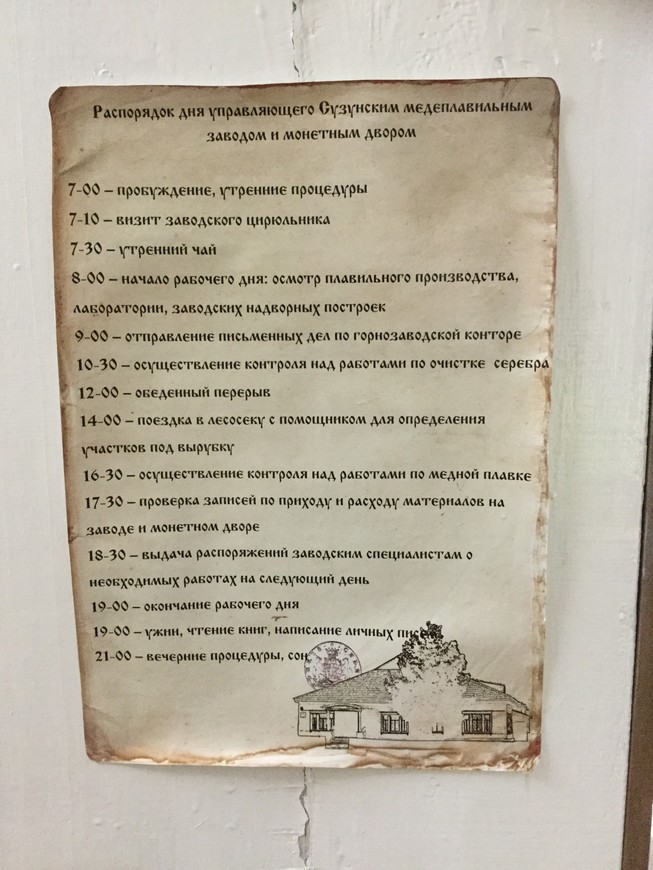 Распорядок дня управляющего Сузунским медеплавильным
заводом и монетным двором
7-00 – пробуждение, утренние процедуры
7-10 – визит заводского цирюльника
7-30 – утренний чай
8-00 – начало рабочего дня: осмотр плавильного производства,
лаборатории, заводских надворных построек
9-00 – отправление письменных дел по горнозаводской конторе
10-30 – осуществление контроля над работами по очистке серебра
12-00 – обеденный перерыв
14-00 – поездка в лесосеку с помощником для определения
участков под вырубку
16-30 – осуществление контроля над работами по медной плавке
17-30 – проверка записей по приходу и расходу материалов на
заводе и монетном дворе
18-30 – выдача распоряжений заводским специалистам о
необходимых работах на следующий день
19-00 – окончание рабочего дня
19-00 – ужин, чтение книг, написание личных
21-00 – вечерние процедуры, сон